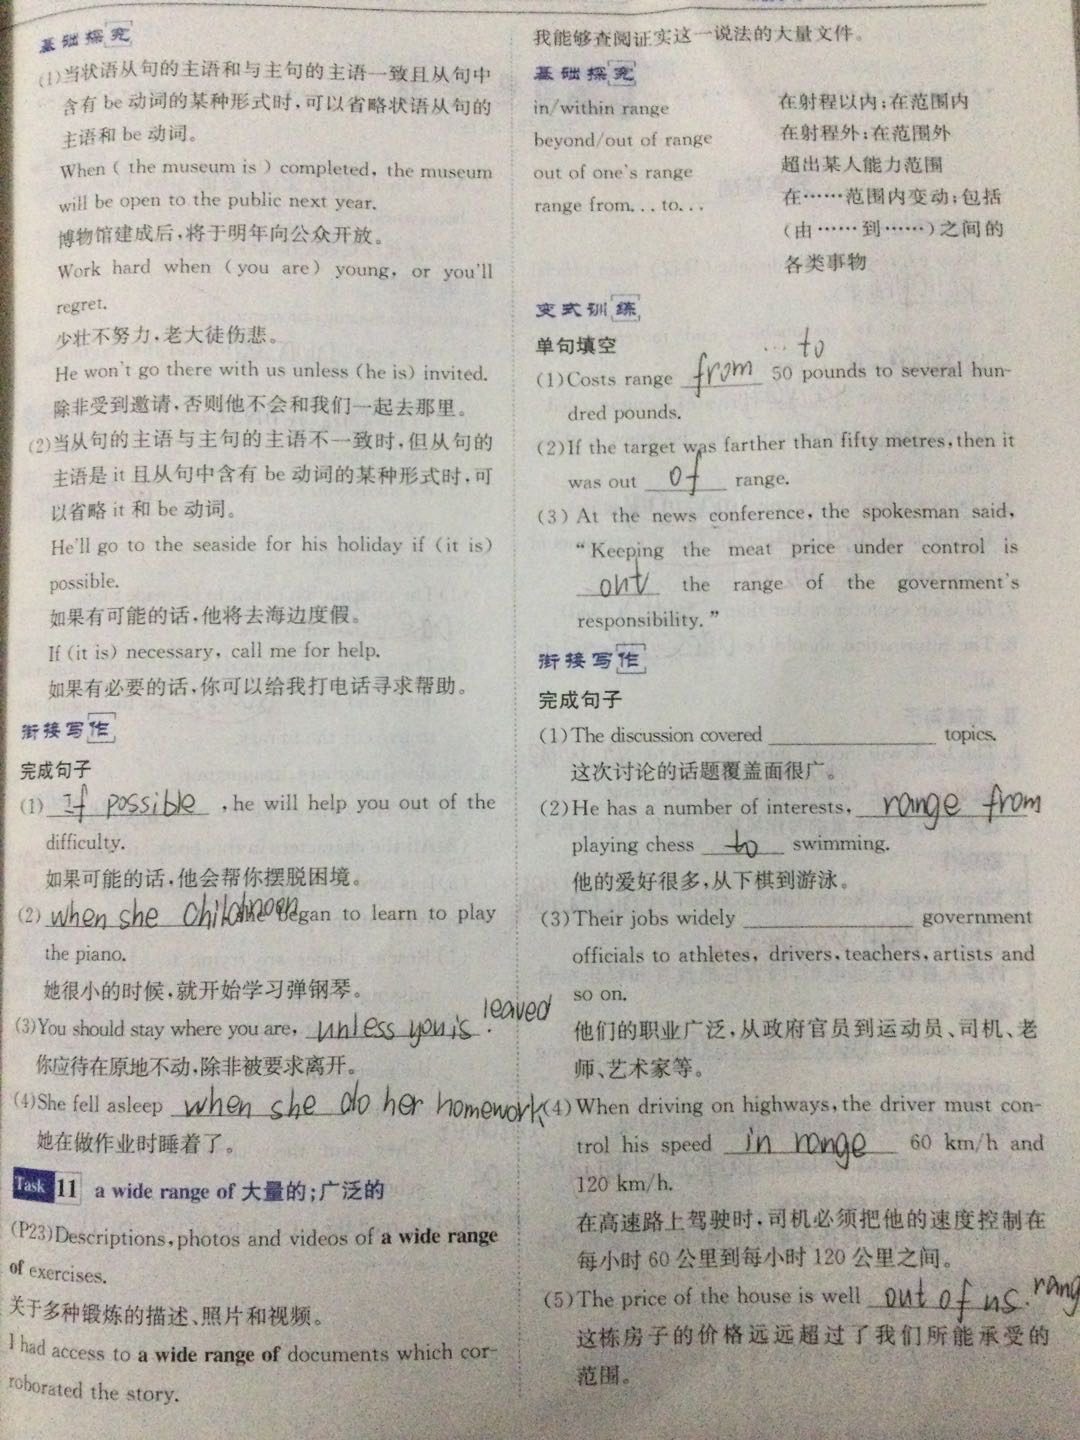 基础探究
(1)当状语从句的主语和与主句的主语一致且从句中
含有 be 动词的某种形式时,可以省略状语从句的
主语和 be 动词。
When ( the museum is ) completed, the museum
will be open to the public next year.
博物馆建成后,将于明年向公众开放。
Work hard when (you are) young, or you'll
regret.
少壮不努力,老大徒伤悲。
He won't go there with us unless (he is) invited.
除非受到邀请,否则他不会和我们一起去那里。
(2)当从句的主语与主句的主语不一致时,但从句的
主语是 it 且从句中含有 be 动词的某种形式时,可
以省略 it 和 be 动词。
He'll go to the seaside for his holiday if (it is)
possible.
如果有可能的话,他将去海边度假。
If (it is) necessary, call me for help.
如果有必要的话,你可以给我打电话寻求帮助。
衔接写作
完成句子
(1) If possible , he will help you out of the
difficulty.
如果可能的话,他会帮你摆脱困境。
(2) when she began to learn to play
the piano.
她很小的时候,就开始学习弹钢琴。
(3)You should stay where you are, unless you is leaved.
你应待在原地不动,除非被要求离开。
(4)She fell asleep when she do her homework
她在做作业时睡着了。
Task 11 a wide range of 大量的;广泛的
(P23)Descriptions, photos and videos of a wide range
of exercises.
关于多种锻炼的描述、照片和视频。
I had access to a wide range of documents which cor-
roborated the story.
我能够查阅证实这一说法的大量文件。
基础探究
in/within range 在射程以内;在范围内
beyond/out of range 在射程外;在范围外
out of one's range 超出某人能力范围
range from...to... 在……范围内变动;包括
(由……到……)之间的
各类事物
变式训练
单句填空
... to
(1)Costs range from 50 pounds to several hun-
dred pounds.
(2)If the target was farther than fifty metres, then it
was out of range.
(3) At the news conference, the spokesman said,
"Keeping the meat price under control is
out the range of the government's
responsibility."
衔接写作
完成句子
(1)The discussion covered ______ topics.
这次讨论的话题覆盖面很广。
(2)He has a number of interests, range from
playing chess to swimming.
他的爱好很多,从下棋到游泳。
(3)Their jobs widely ______ government
officials to athletes, drivers, teachers, artists and
so on.
他们的职业广泛,从政府官员到运动员、司机、老
师、艺术家等。
(4)When driving on highways, the driver must con-
trol his speed in range 60 km/h and
120 km/h.
在高速路上驾驶时,司机必须把他的速度控制在
每小时 60 公里到每小时 120 公里之间。
(5)The price of the house is well out of us. rang
这栋房子的价格远远超过了我们所能承受的
范围。